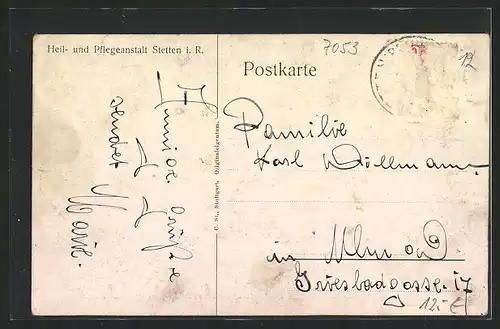 Heil- und Pflegeanstalt Stetten i. R.
7053
12
Postkarte
Innige Grüße
sendet
Marie.
C. St., Stuttgart. Originaleigentum.
Familie
Karl
in Ulm a/D.
Griesbadgasse 17
12.- €